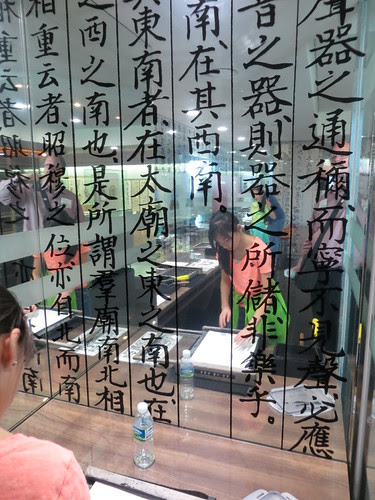 聲器之通稱,而寧不見聲必應
音之器,則器之所儲,非樂乎。
南、在其西南。
其東南者、在太廟之東之南也、在
之西之南也、是所謂羣廟南北相
相重云者、昭穆之位、亦自北而南